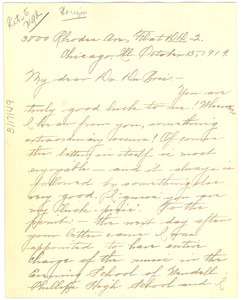 3700 Rhodes Ave., Flat D.D.-2.
Chicago, Ill. October 13, 1919
My dear Dr. Du Bois:-
You are
truly "good luck" to me! When
I hear from you, something
extraordinary occurs! Of course
the letter in itself is most
enjoyable - and it always is
followed by something else
very good. I guess you are
my "luck-
point: - the next day after
your letter came I was
appointed to have entire
charge of the music in the
Evening School of Wendell
Phillips High School and I